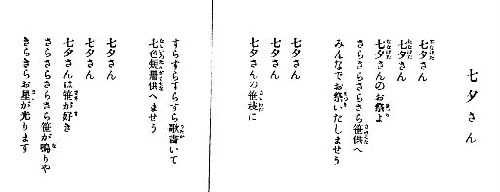 七夕さん
七夕さん
七夕さん
七夕さんのお祭よ
さらさらさらさら笹供へ
みんなでお祭いたしませう
七夕さん
七夕さん
七夕さんの笹枝に
すらすらすらすら歌書いて
七色短册供へませう
七夕さん
七夕さん
七夕さんは笹が好き
さらさらさらさら笹が鳴りや
きらきらお星が光ります